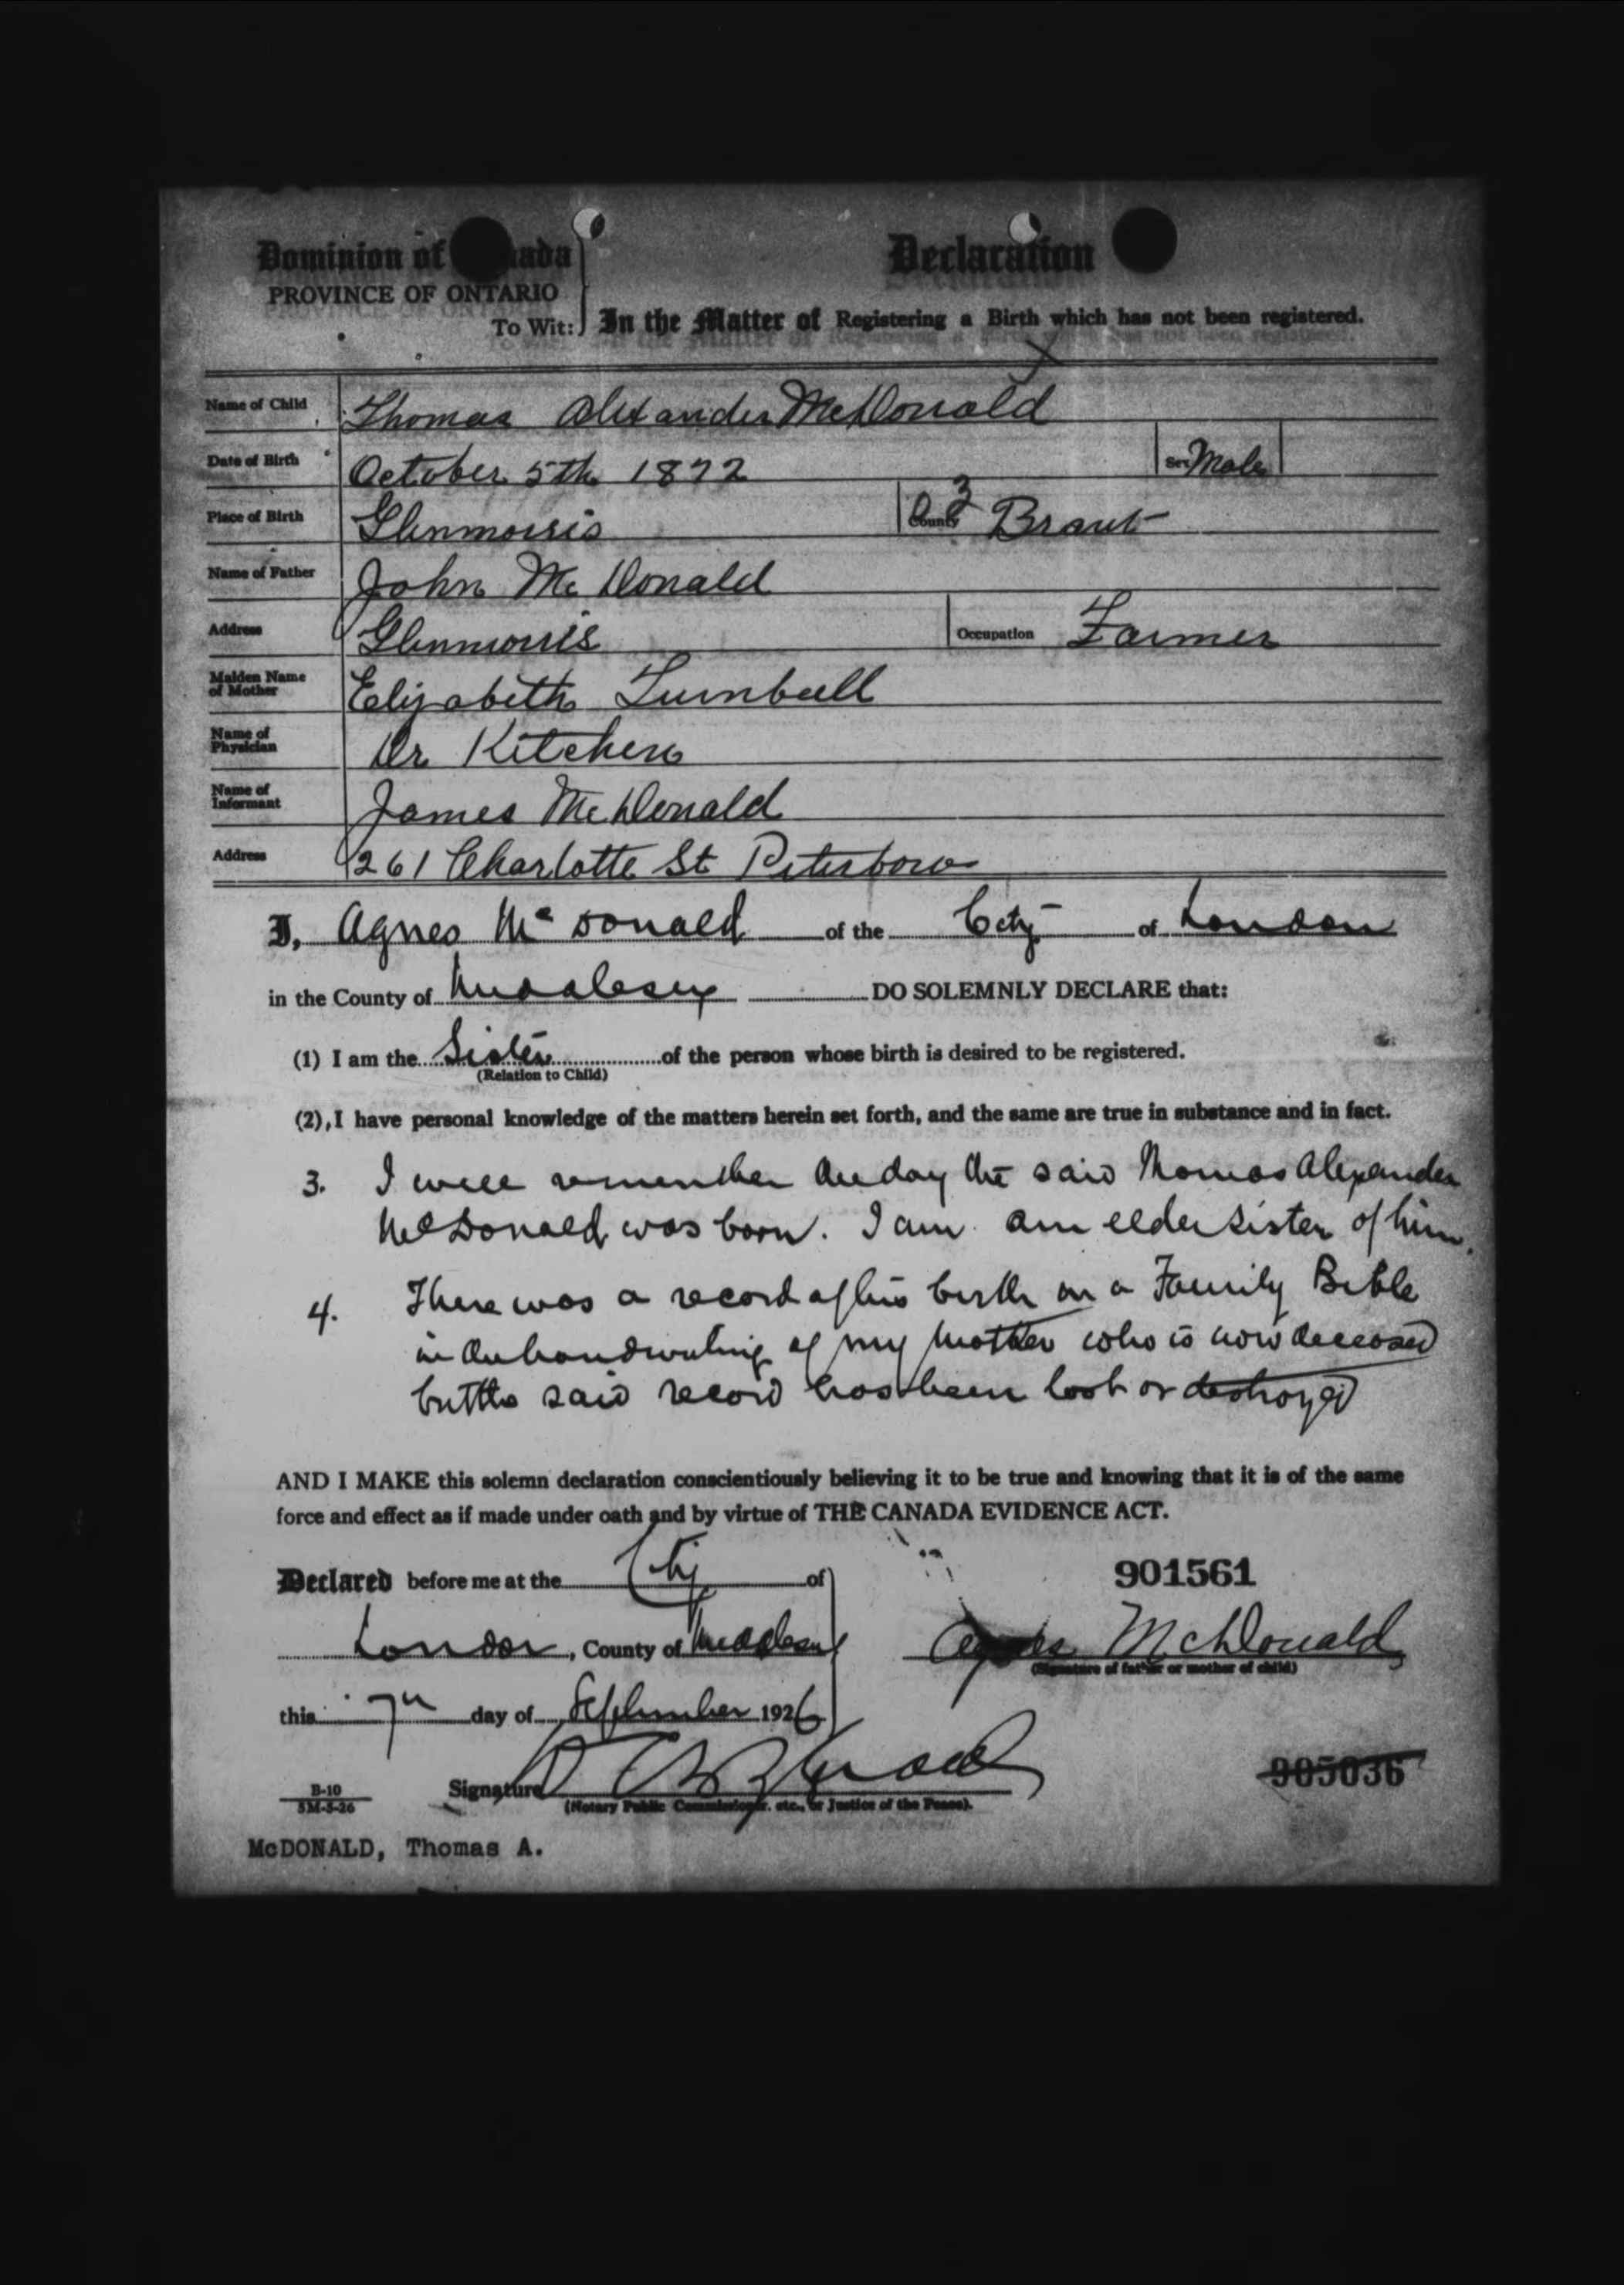 Dominion of nada
PROVINCE OF ONTARIO
To Wit:
Declaration
In the Matter of Registering a Birth which has not been registered.
Name of Child Thomas Alexander McDonald
Date of Birth October 5th 1872 Sex Male
Place of Birth Glenmorris County 3 Brant
Name of Father John McDonald
Address Glenmorris Occupation Farmer
Maiden Name of Mother Elizabeth Turnbull
Name of Physician Dr Kitchen
Name of Informant James McDonald
Address 261 Charlotte St Peterboro
I, Agnes McDonald of the City of London
in the County of Middlesex DO SOLEMNLY DECLARE that:
(1) I am the Sister of the person whose birth is desired to be registered.
(Relation to Child)
(2), I have personal knowledge of the matters herein set forth, and the same are true in substance and in fact.
3. I well remember the day the said Thomas Alexander
McDonald was born. I am an elder sister of him.
4. There was a record of his birth in a Family Bible
in the handwriting of my mother who is now deceased
but the said record has been lost or destroyed
AND I MAKE this solemn declaration conscientiously believing it to be true and knowing that it is of the same
force and effect as if made under oath and by virtue of THE CANADA EVIDENCE ACT.
Declared before me at the City of
901561
London, County of Middlesex
Agnes McDonald
(Signature of father or mother of child)
this 7th day of September 1926
905036
B-10
5M-5-26
Signature
(Notary Public Commissioner, etc., or Justice of the Peace).
McDONALD, Thomas A.